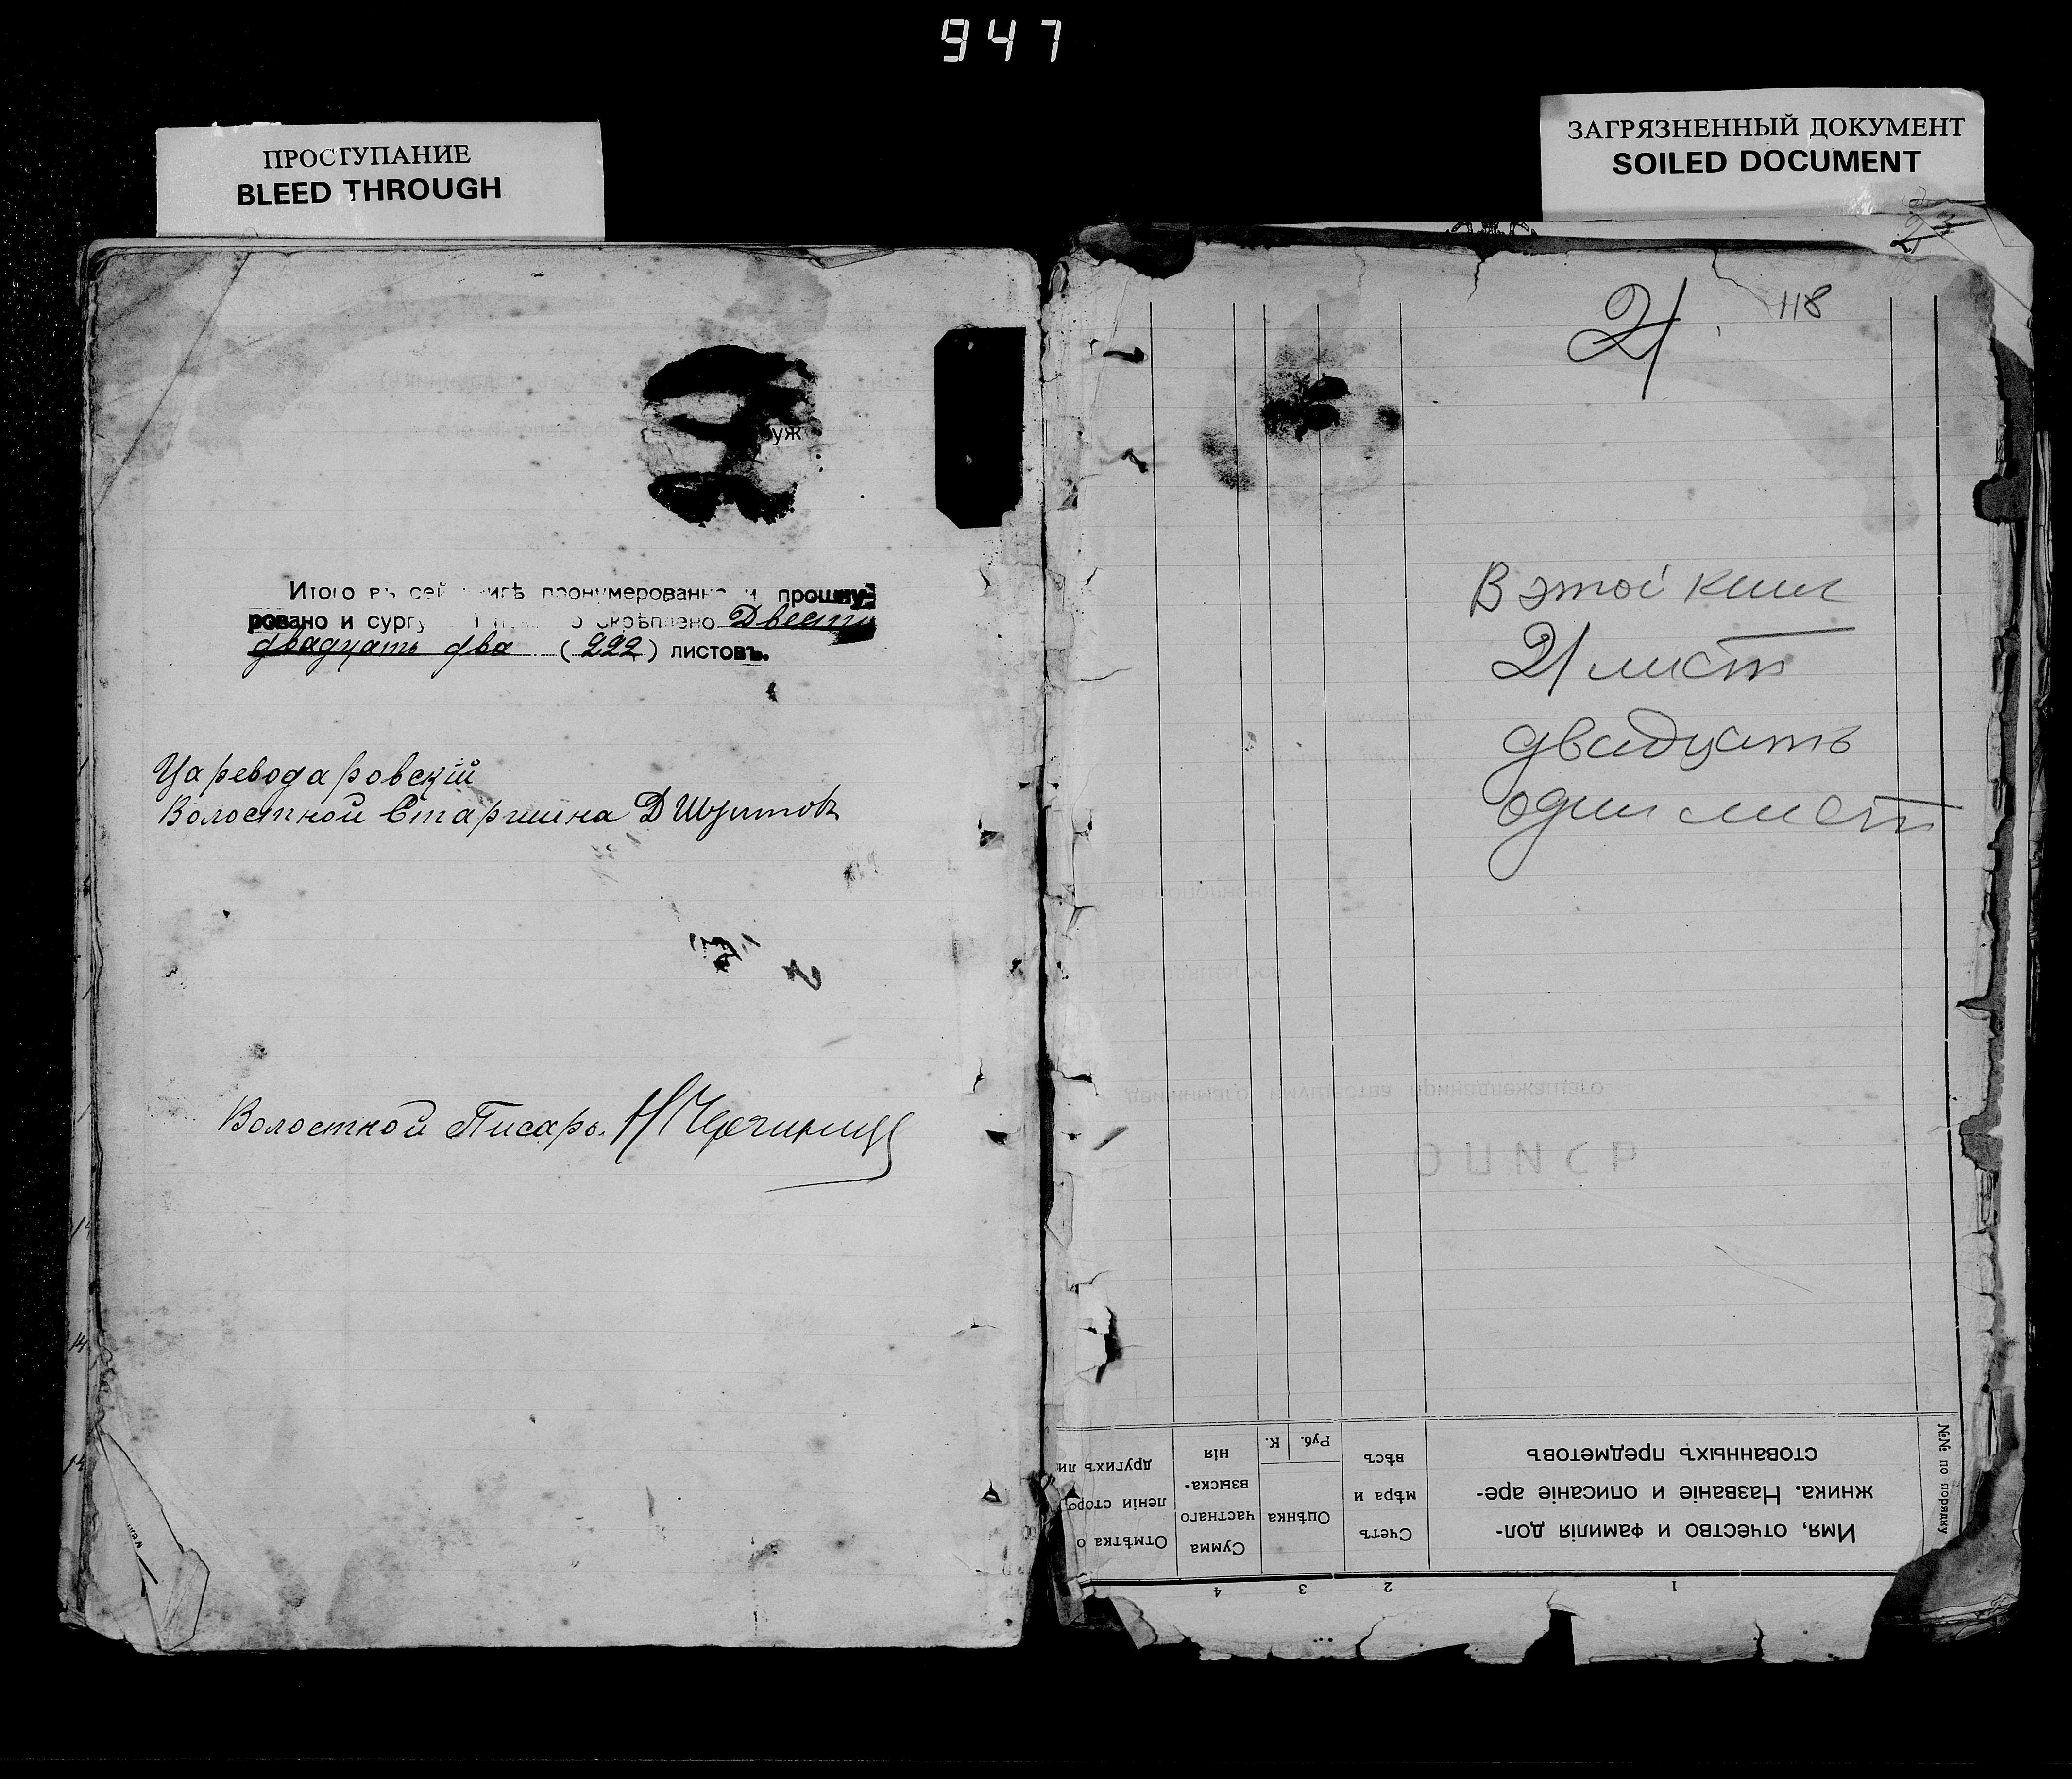 947
ПРОСТУПАНИЕ
BLEED THROUGH
ЗАГРЯЗНЕННЫЙ ДОКУМЕНТ
SOILED DOCUMENT
уж
Итого въ сей пронумерованн и прошну-
ровано и сургу скрѣплено Двести
двадцать два (222) листовъ.
Цареводаровскій
Волостной Старшина Д
Волостной Писарь
23
21
118
В этой книг
21 лист
двадцать
один лист
№№ по порядку
Имя, отчество и фамилія дол-
жника. Названіе и описаніе аре-
стованныхъ предметовъ
Счетъ
мѣра и
вѣсъ
Оцѣнка
Руб.
К.
Сумма
частнаго
взыска-
нія
Отмѣтка о
леніи сторо
другихъ ли
1
2
3
4